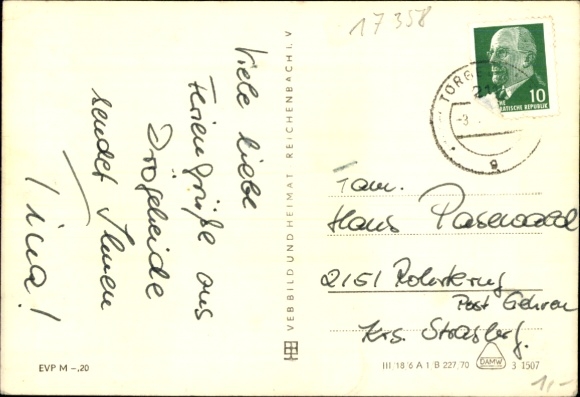 17358
Viele liebe
Feriengrüße aus
Drögeheide
sendet Ihnen
Tina!
EVP M –,20
VEB BILD UND HEIMAT REICHENBACH I. V
TORG
21
-3.
a
10
CHE
KRATISCHE REPUBLIK
Fam.
Hans Pasewald
2151 Rohrkrug
Post Gehren
Krs. Strasbg.
III 18 6 A 1 B 227/70
DAMW
3 1507
1,-